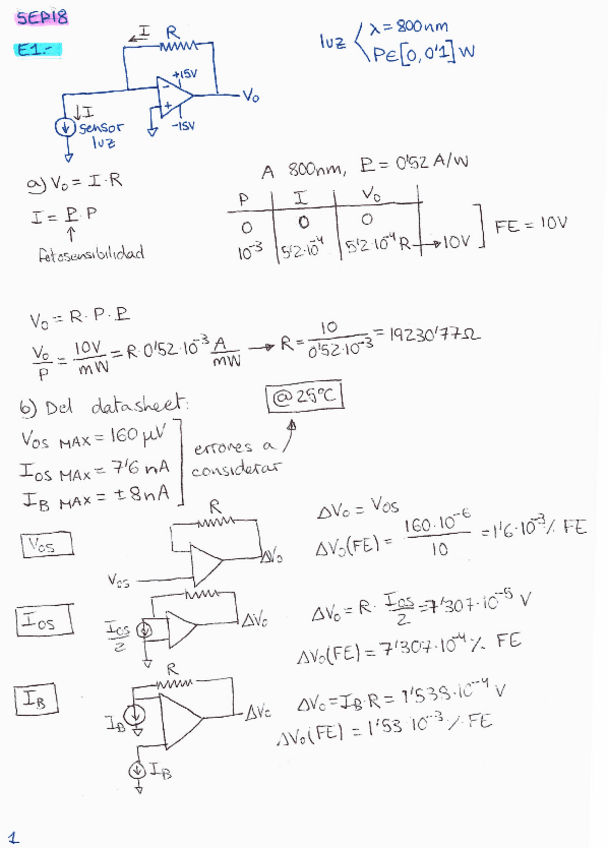 SEP18
E1.-
I R
+15V
-
+
Vo
-15V
I
sensor
luz
luz λ = 800nm
P∈[0,0'1] W
a) Vo = I·R
I = P·P
fotosensibilidad
A 800nm, P = 0'52 A/W
P I Vo
0 0 0
10⁻³ 5'2·10⁻⁴ 5'2·10⁻⁴R → 10V
FE = 10V
Vo = R·P·P
Vo/P = 10V/mW = R·0'52·10⁻³ A/mW → R = 10/0'52·10⁻³ = 19230'77Ω
b) Del datasheet:
@ 25ºC
VOS MAX = 160 μV
IOS MAX = 7'6 nA
IB MAX = ±8nA
errores a
considerar
VOS
R
VOS
ΔVo
ΔVo = VOS
ΔVo(FE) = 160·10⁻⁶/10 = 1'6·10⁻³% FE
IOS
IOS/2
ΔVo
ΔVo = R·IOS/2 = 7'307·10⁻⁵ V
ΔVo(FE) = 7'307·10⁻⁴% FE
IB
R
IB
ΔVo
IB
ΔVo = IB·R = 1'538·10⁻⁴ V
ΔVo(FE) = 1'53·10⁻³% FE
1